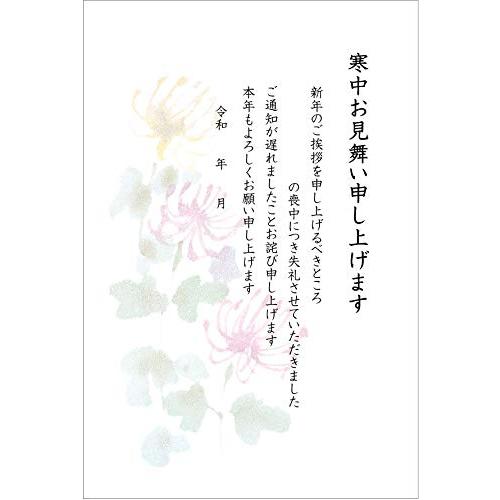 寒中お見舞い申し上げます
新年のご挨拶を申し上げるべきところ
の喪中につき失礼させていただきました
ご通知が遅れましたことお詫び申し上げます
本年もよろしくお願い申し上げます
令和　年　月